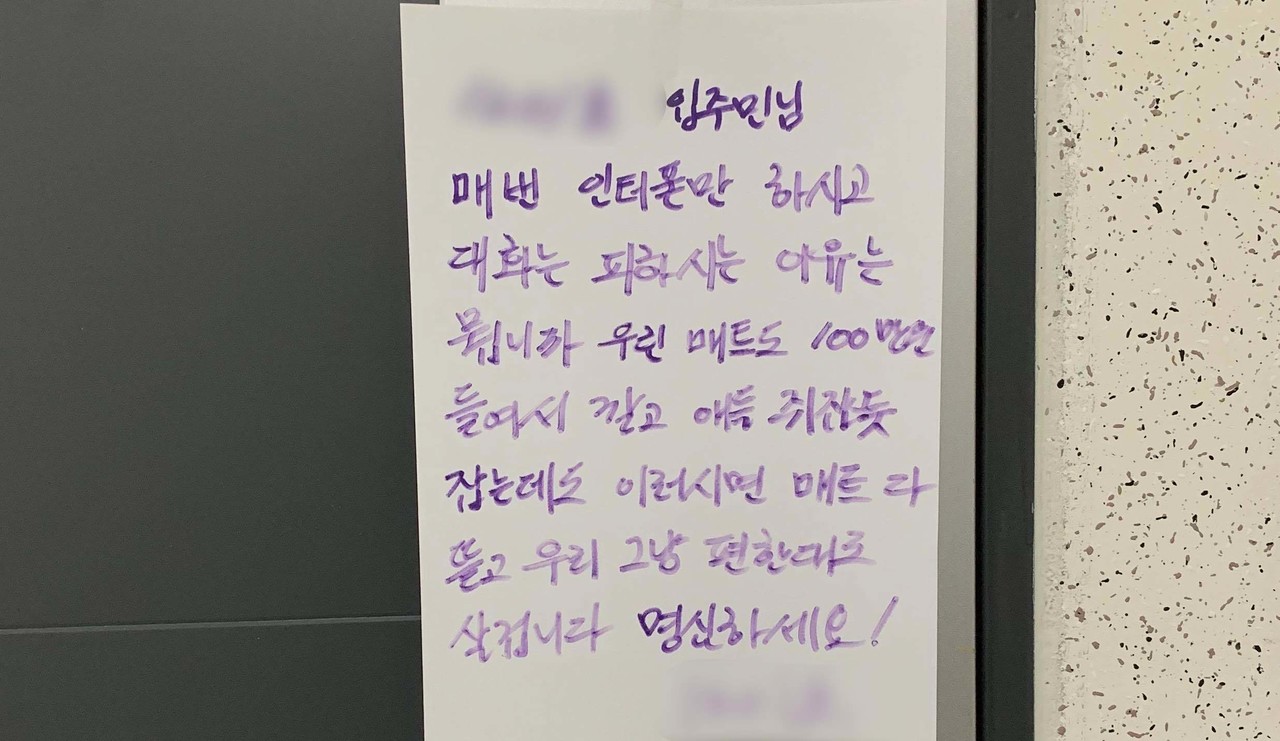 입주민님
매번 인터폰만 하시고
대화는 피하시는 이유는
뭡니까 우린 매트도 100만원
들여서 깔고 애들 쥐잡듯
잡는데도 이러시면 매트 다
뜯고 우리 그냥 편한대로
살겁니다 명심하세요!